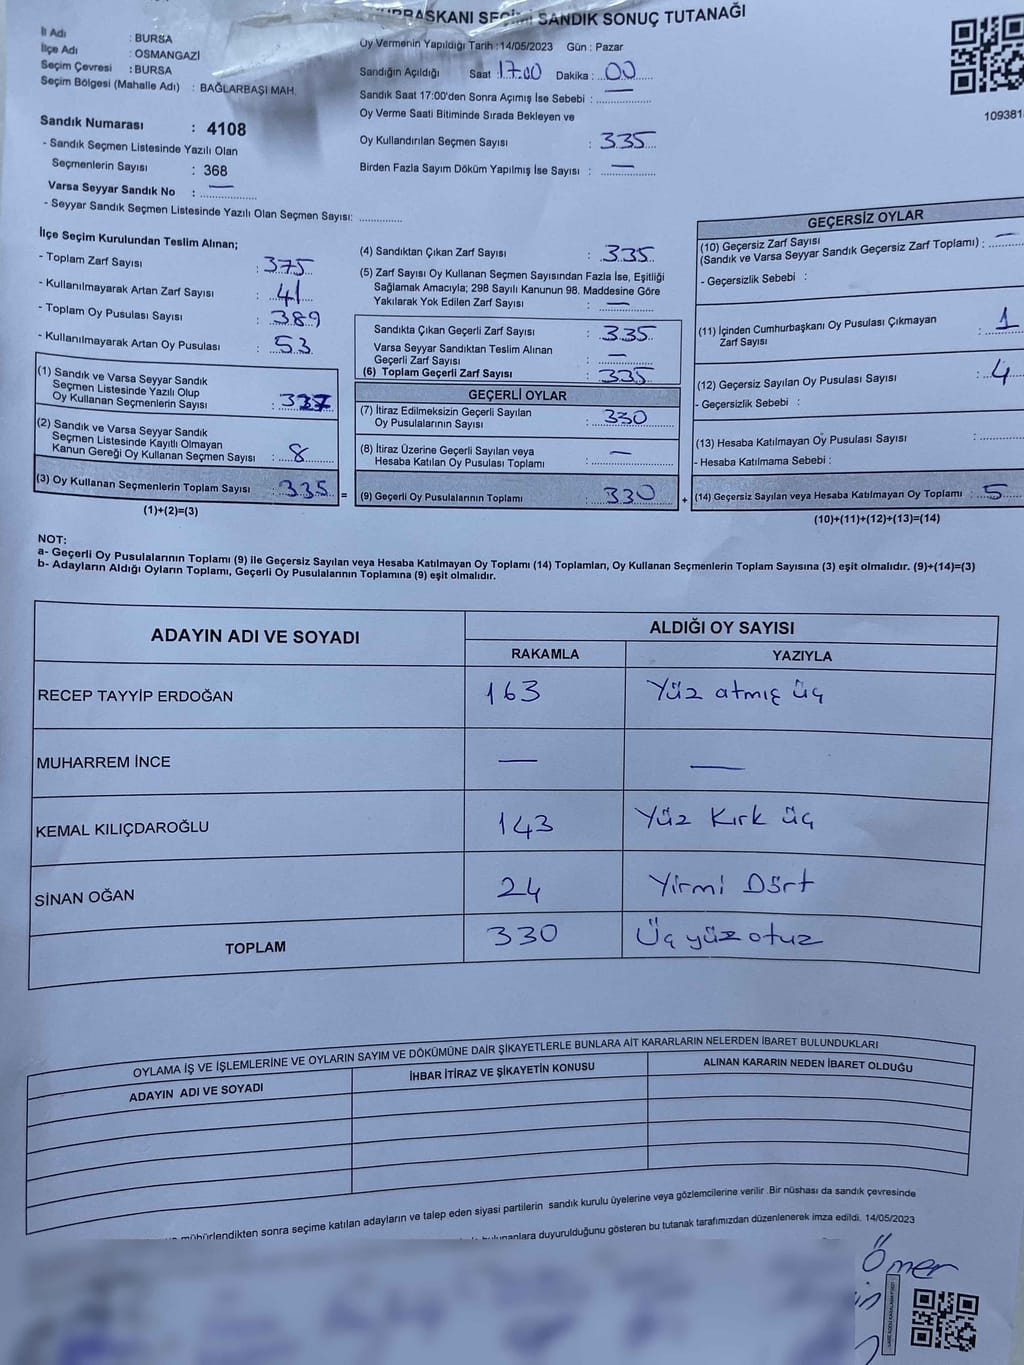 SANDIK SONUÇ TUTANAĞI
İl Adı : BURSA
İlçe Adı : OSMANGAZİ
Seçim Çevresi : BURSA
Seçim Bölgesi (Mahalle Adı) : BAĞLARBAŞI MAH.
Sandık Numarası : 4108
- Sandık Seçmen Listesinde Yazılı Olan
Seçmenlerin Sayısı : 368
Varsa Seyyar Sandık No : —
- Seyyar Sandık Seçmen Listesinde Yazılı Olan Seçmen Sayısı: ............
Oy Vermenin Yapıldığı Tarih : 14/05/2023 Gün : Pazar
Sandığın Açıldığı Saat 17.00 Dakika : 00
Sandık Saat 17:00'den Sonra Açımış İse Sebebi : —
Oy Verme Saati Bitiminde Sırada Bekleyen ve
Oy Kullandırılan Seçmen Sayısı : 335
Birden Fazla Sayım Döküm Yapılmış İse Sayısı : —
109381
İlçe Seçim Kurulundan Teslim Alınan;
- Toplam Zarf Sayısı : 375
- Kullanılmayarak Artan Zarf Sayısı : 41
- Toplam Oy Pusulası Sayısı : 389
- Kullanılmayarak Artan Oy Pusulası : 53
(1) Sandık ve Varsa Seyyar Sandık
Seçmen Listesinde Yazılı Olup
Oy Kullanan Seçmenlerin Sayısı :
(2) Sandık ve Varsa Seyyar Sandık
Seçmen Listesinde Kayıtlı Olmayan
Kanun Gereği Oy Kullanan Seçmen Sayısı : 8
(3) Oy Kullanan Seçmenlerin Toplam Sayısı : 335 =
(1)+(2)=(3)
(4) Sandıktan Çıkan Zarf Sayısı : 335
(5) Zarf Sayısı Oy Kullanan Seçmen Sayısından Fazla İse, Eşitliği
Sağlamak Amacıyla; 298 Sayılı Kanunun 98. Maddesine Göre
Yakılarak Yok Edilen Zarf Sayısı : —
Sandıkta Çıkan Geçerli Zarf Sayısı : 335
Varsa Seyyar Sandıktan Teslim Alınan
Geçerli Zarf Sayısı : —
(6) Toplam Geçerli Zarf Sayısı : 335
GEÇERLİ OYLAR
(7) İtiraz Edilmeksizin Geçerli Sayılan
Oy Pusulalarının Sayısı : 330
(8) İtiraz Üzerine Geçerli Sayılan veya
Hesaba Katılan Oy Pusulası Toplamı : —
(9) Geçerli Oy Pusulalarının Toplamı : 330 +
GEÇERSİZ OYLAR
(10) Geçersiz Zarf Sayısı
(Sandık ve Varsa Seyyar Sandık Geçersiz Zarf Toplamı) : —
- Geçersizlik Sebebi :
(11) İçinden Cumhurbaşkanı Oy Pusulası Çıkmayan
Zarf Sayısı : 1
(12) Geçersiz Sayılan Oy Pusulası Sayısı : 4
- Geçersizlik Sebebi :
(13) Hesaba Katılmayan Oy Pusulası Sayısı : ............
- Hesaba Katılmama Sebebi :
(14) Geçersiz Sayılan veya Hesaba Katılmayan Oy Toplamı : 5
(10)+(11)+(12)+(13)=(14)
NOT:
a- Geçerli Oy Pusulalarının Toplamı (9) ile Geçersiz Sayılan veya Hesaba Katılmayan Oy Toplamı (14) Toplamları, Oy Kullanan Seçmenlerin Toplam Sayısına (3) eşit olmalıdır. (9)+(14)=(3)
b- Adayların Aldığı Oyların Toplamı, Geçerli Oy Pusulalarının Toplamına (9) eşit olmalıdır.
ADAYIN ADI VE SOYADI
ALDIĞI OY SAYISI
RAKAMLA YAZIYLA
RECEP TAYYİP ERDOĞAN 163 Yüz atmış üç
MUHARREM İNCE — —
KEMAL KILIÇDAROĞLU 143 Yüz Kırk üç
SİNAN OĞAN 24 Yirmi Dört
TOPLAM 330 Üç yüz otuz
OYLAMA İŞ VE İŞLEMLERİNE VE OYLARIN SAYIM VE DÖKÜMÜNE DAİR ŞİKAYETLERLE BUNLARA AİT KARARLARIN NELERDEN İBARET BULUNDUKLARI
ADAYIN ADI VE SOYADI İHBAR İTİRAZ VE ŞİKAYETİN KONUSU ALINAN KARARIN NEDEN İBARET OLDUĞU
mühürlendikten sonra seçime katılan adayların ve talep eden siyasi partilerin sandık kurulu üyelerine veya gözlemcilerine verilir .Bir nüshası da sandık çevresinde
bulunanlara duyurulduğunu gösteren bu tutanak tarafımızdan düzenlenerek imza edildi. 14/05/2023
Ömer